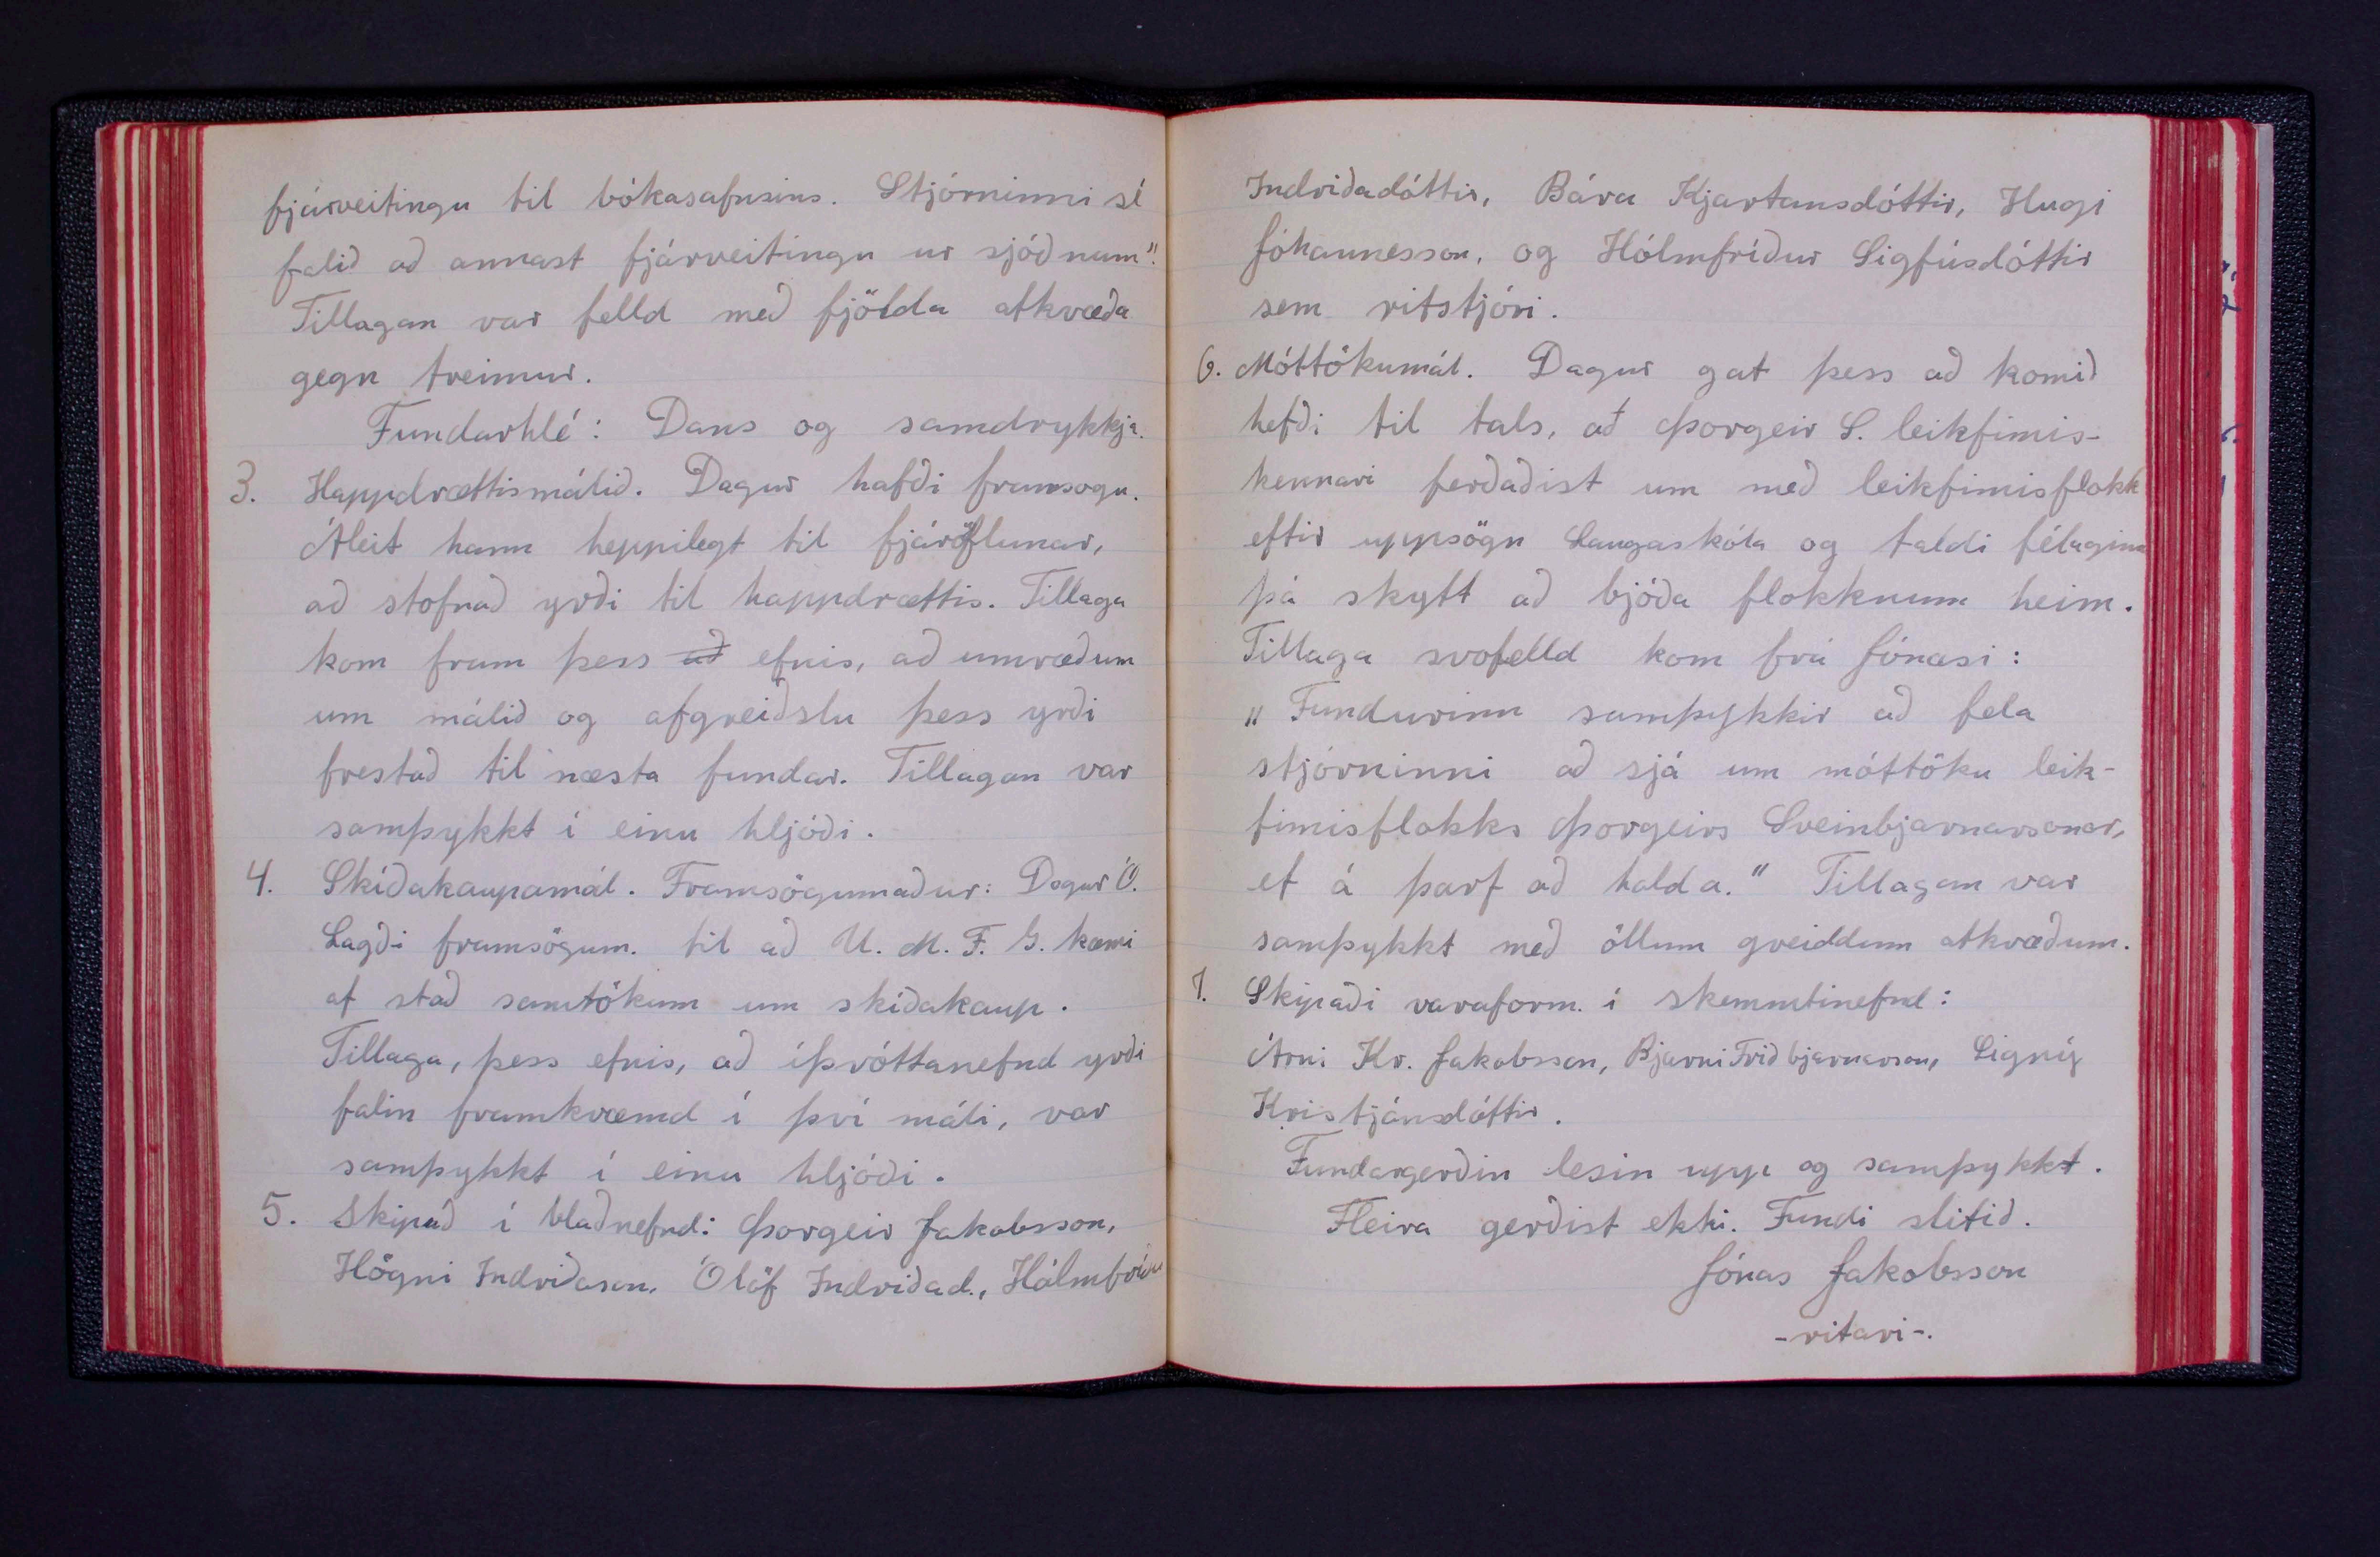 fjárveitingu til bókasafnsins. Stjórninni sé
falið að annast fjárveitingu ur sjóðnum".
Tillagan var felld með fjölda atkvæða
gegn tveimur.
Fundarhlé: Dans og samdrykkja.
3. Happdrættismálið. Dagur hafði framsogu.
Áleit hann heppilegt til fjáröflunar,
að stofnað yrði til happdrættis. Tillaga
kom fram þess að efnis, að umræðum
um málið og afgreiðslu þess yrði
frestað til næsta fundar. Tillagan var
samþykkt í einu hljóði.
4. Skíðakaupamál. Framsögumaður: Dagur Ó.
Lagði framsögum. til að U. M. F. G. kæmi
af stað samtökum um skíðakaup.
Tillaga, þess efnis, að íþróttanefnd yrði
falin framkvæmd í því máli, var
samþykkt í einu hljóði.
5. Skipað í blaðnefnd: Þorgeir Jakobsson,
Högni Indriðason, Ólöf Indriðad., Hólmfríður
Indriðadóttir, Bára Kjartansdóttir, Hugi
Jóhannesson, og Hólmfríður Sigfúsdóttir
sem ritstjóri.
6. Móttökumál. Dagur gat þess að komið
hefði til tals, að Þorgeir S. leikfimis-
kennari ferðaðist um með leikfimisflokk
eftir uppsögn Laugaskóla og taldi félaginu
þá skylt að bjóða flokknum heim.
Tillaga svofelld kom frá Jónasi:
„Fundurinn samþykkir að fela
stjórninni að sjá um móttöku leik-
fimisflokks Þorgeirs Sveinbjarnarsonar,
ef á þarf að halda." Tillagan var
samþykkt með öllum greiddum atkvæðum.
7. Skipaði varaform. í skemmtinefnd:
Árni Kr. Jakobsson, Bjarni Friðbjarnarson, Signý
Kristjánsdóttir.
Fundargerðin lesin upp og samþykkt.
Fleira gerðist ekki. Fundi slitið.
Jónas Jakobsson
-ritari-.